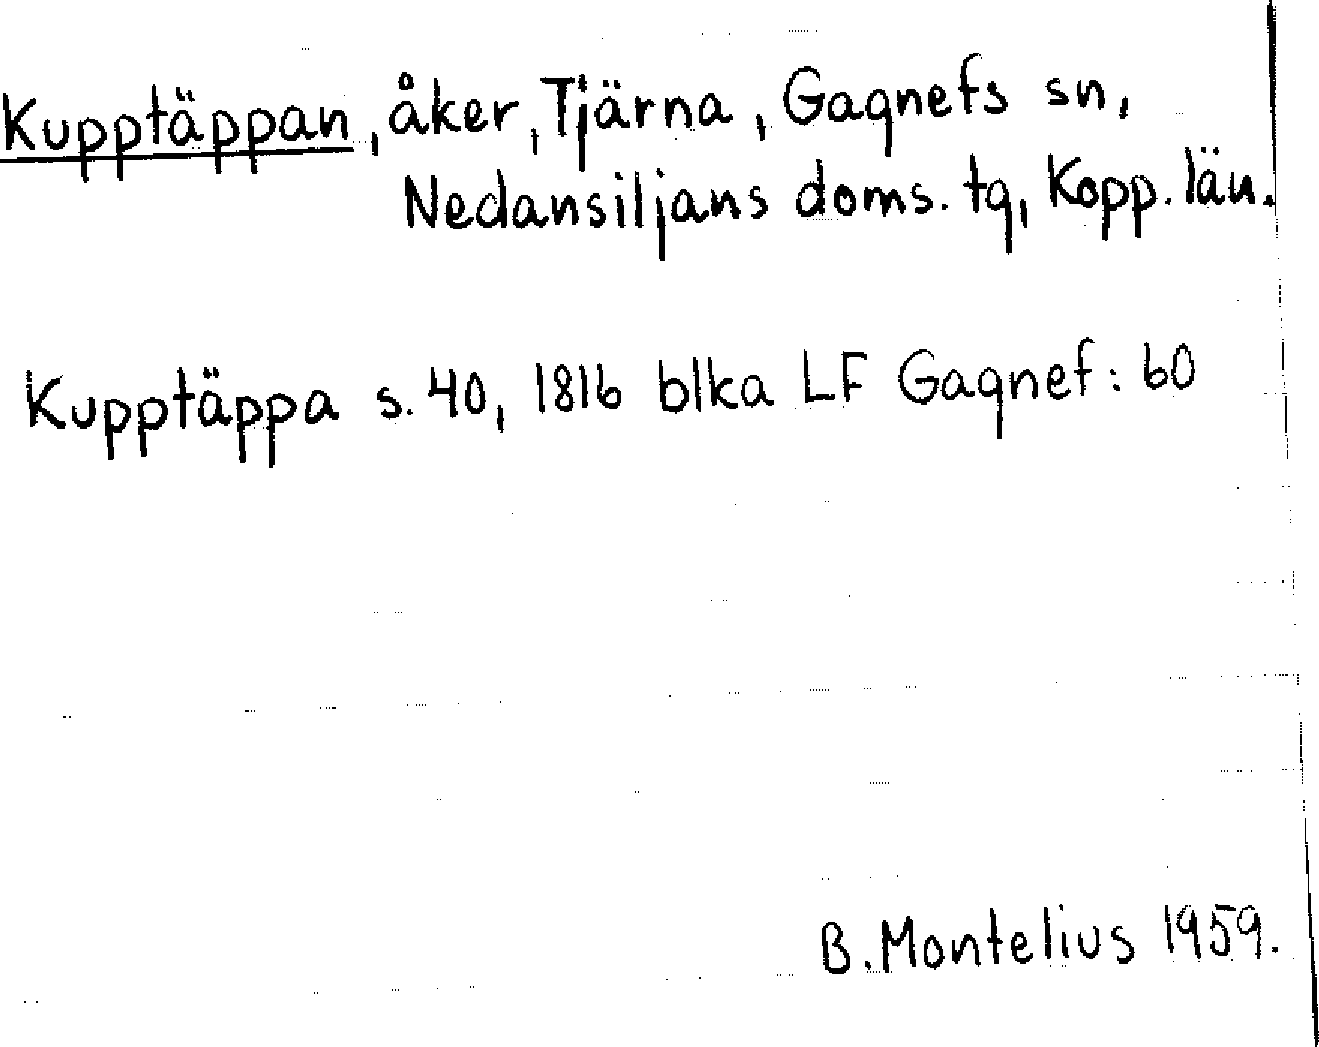 Kupptäppan, åker, Tjärna, Gagnefs sn,
Nedansiljans doms. tg, Kopp. län.
Kupptäppa s. 40, 1816 blka LF Gagnef: 60
B. Montelius 1959.